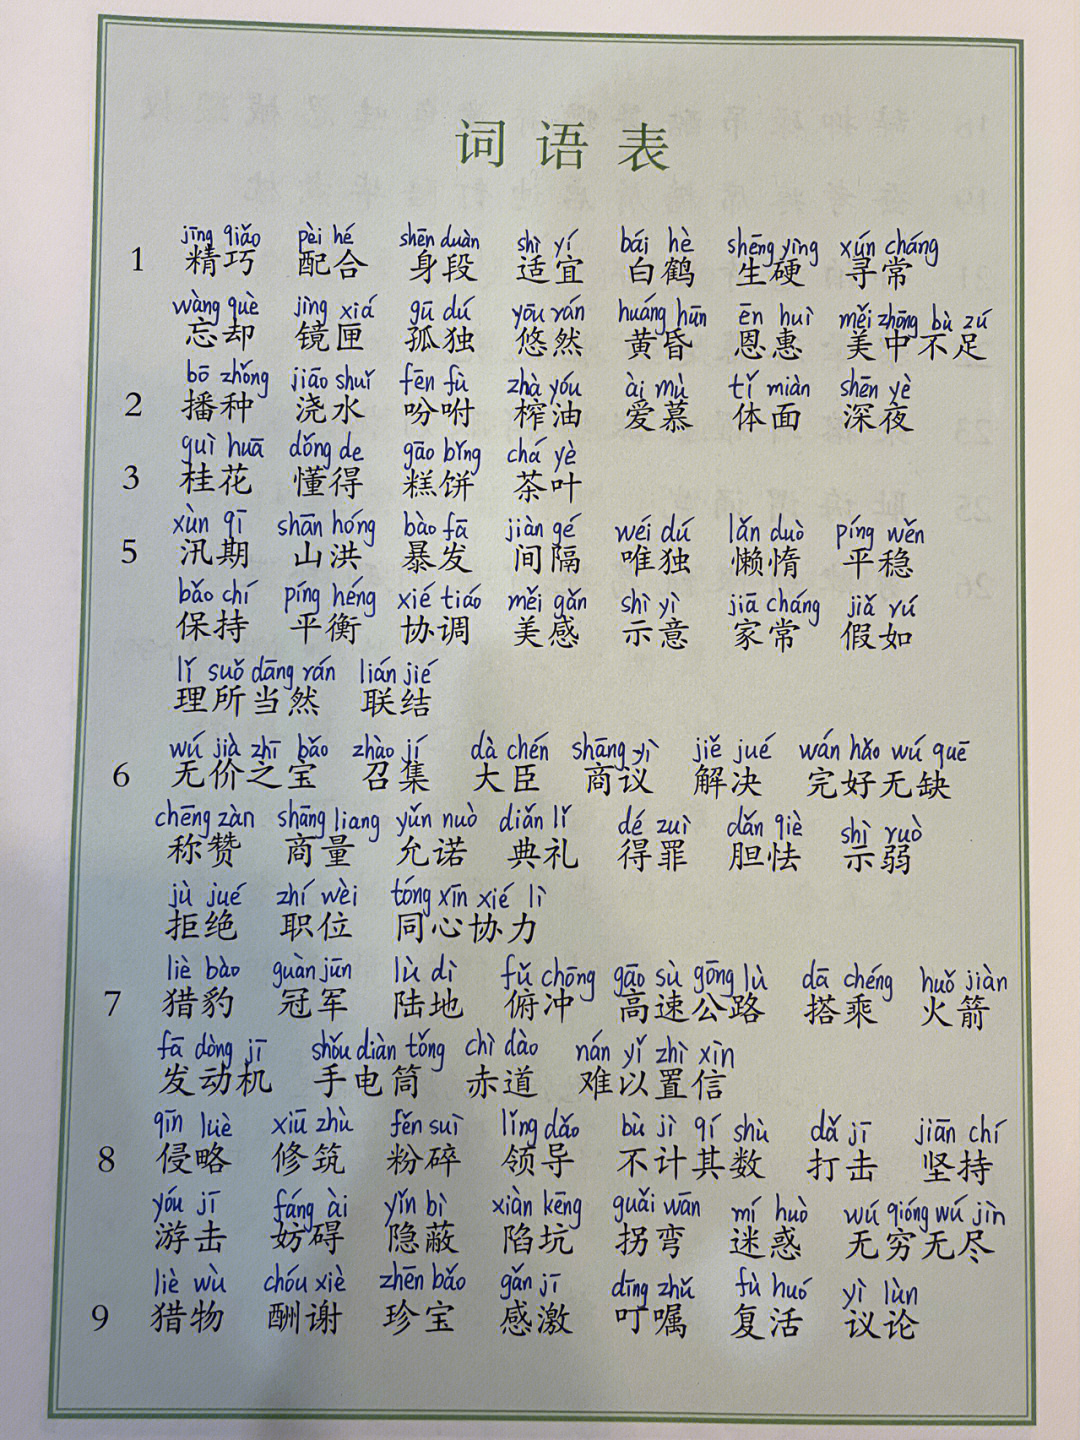 词语表
jīng qiǎo pèi hé shēn duàn shì yí bái hè shēng yìng xún cháng
1 精巧 配合 身段 适宜 白鹤 生硬 寻常
wàng què jìng xiá gū dú yōu rán huáng hūn ēn huì měi zhōng bù zú
忘却 镜匣 孤独 悠然 黄昏 恩惠 美中不足
bō zhǒng jiāo shuǐ fēn fù zhà yóu ài mù tǐ miàn shēn yè
2 播种 浇水 吩咐 榨油 爱慕 体面 深夜
guì huā dǒng de gāo bǐng chá yè
3 桂花 懂得 糕饼 茶叶
xùn qī shān hóng bào fā jiàn gé wéi dú lǎn duò píng wěn
5 汛期 山洪 暴发 间隔 唯独 懒惰 平稳
bǎo chí píng héng xié tiáo měi gǎn shì yì jiā cháng jiǎ rú
保持 平衡 协调 美感 示意 家常 假如
lǐ suǒ dāng rán lián jié
理所当然 联结
wú jià zhī bǎo zhào jí dà chén shāng yì jiě jué wán hǎo wú quē
6 无价之宝 召集 大臣 商议 解决 完好无缺
chēng zàn shāng liang yǔn nuò diǎn lǐ dé zuì dǎn qiè shì ruò
称赞 商量 允诺 典礼 得罪 胆怯 示弱
jù jué zhí wèi tóng xīn xié lì
拒绝 职位 同心协力
liè bào guàn jūn lù dì fǔ chōng gāo sù gōng lù dā chéng huǒ jiàn
7 猎豹 冠军 陆地 俯冲 高速公路 搭乘 火箭
fā dòng jī shǒu diàn tǒng chì dào nán yǐ zhì xìn
发动机 手电筒 赤道 难以置信
qīn lüè xiū zhù fěn suì lǐng dǎo bù jì qí shù dǎ jī jiān chí
8 侵略 修筑 粉碎 领导 不计其数 打击 坚持
yóu jī fáng ài yǐn bì xiàn kēng guǎi wān mí huò wú qióng wú jìn
游击 妨碍 隐蔽 陷坑 拐弯 迷惑 无穷无尽
liè wù chóu xiè zhēn bǎo gǎn jī dīng zhǔ fù huó yì lùn
9 猎物 酬谢 珍宝 感激 叮嘱 复活 议论